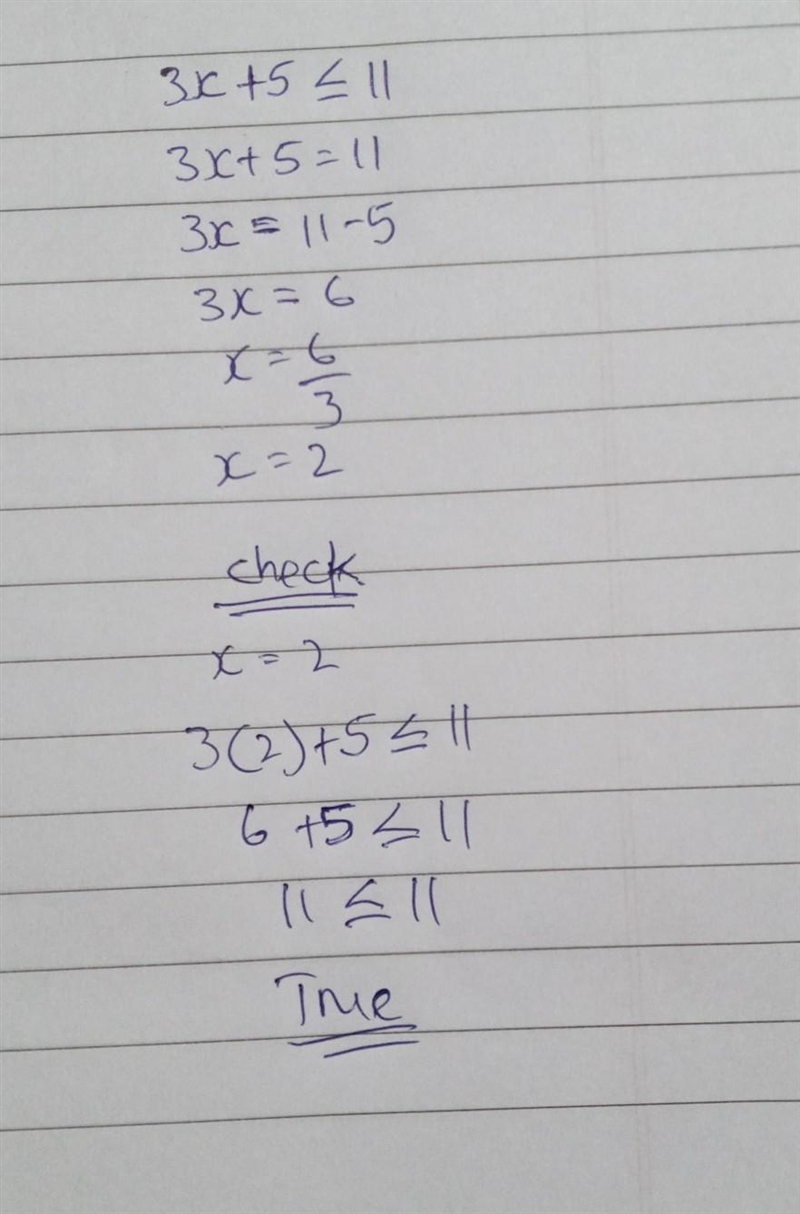 3x+5 ≤ 11
3x+5=11
3x = 11-5
3x = 6
x = 6/3
x = 2
check
x = 2
3(2)+5 ≤ 11
6 +5 ≤ 11
11 ≤ 11
True